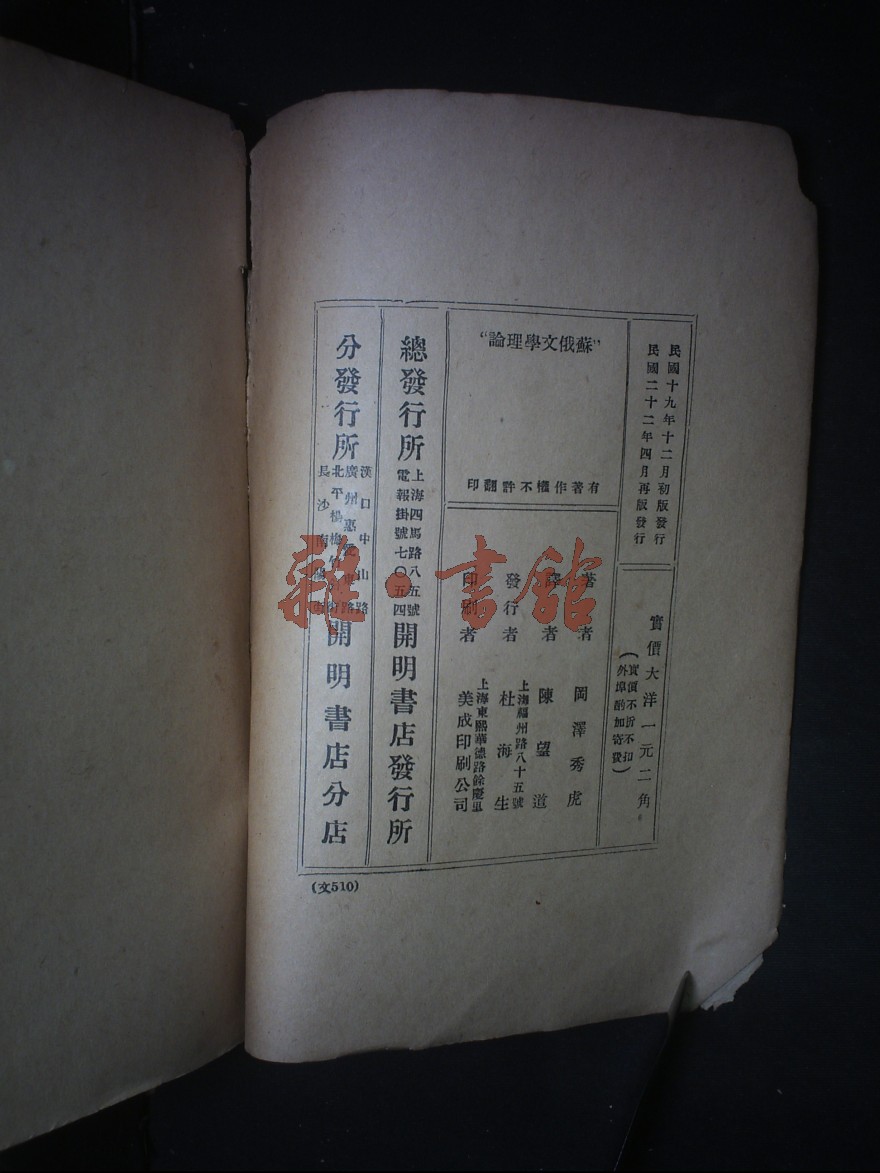 民國十九年十二月初版發行
民國二十二年四月再版發行
實價大洋一元二角
(實價不折不扣
外埠酌加寄費)
"蘇俄文學理論"
有著作權不許翻印
著者 岡澤秀虎
譯者 陳望道
發行者 上海福州路八十五號
杜海生
印刷者 上海東熙華德路餘慶里
美成印刷公司
總發行所 上海四馬路八五號
電報掛號七〇五四
開明書店發行所
分發行所 漢口中山路
廣州惠愛東路
北平楊梅竹斜街
長沙南陽街
開明書店分店
(文510)
雜·書館